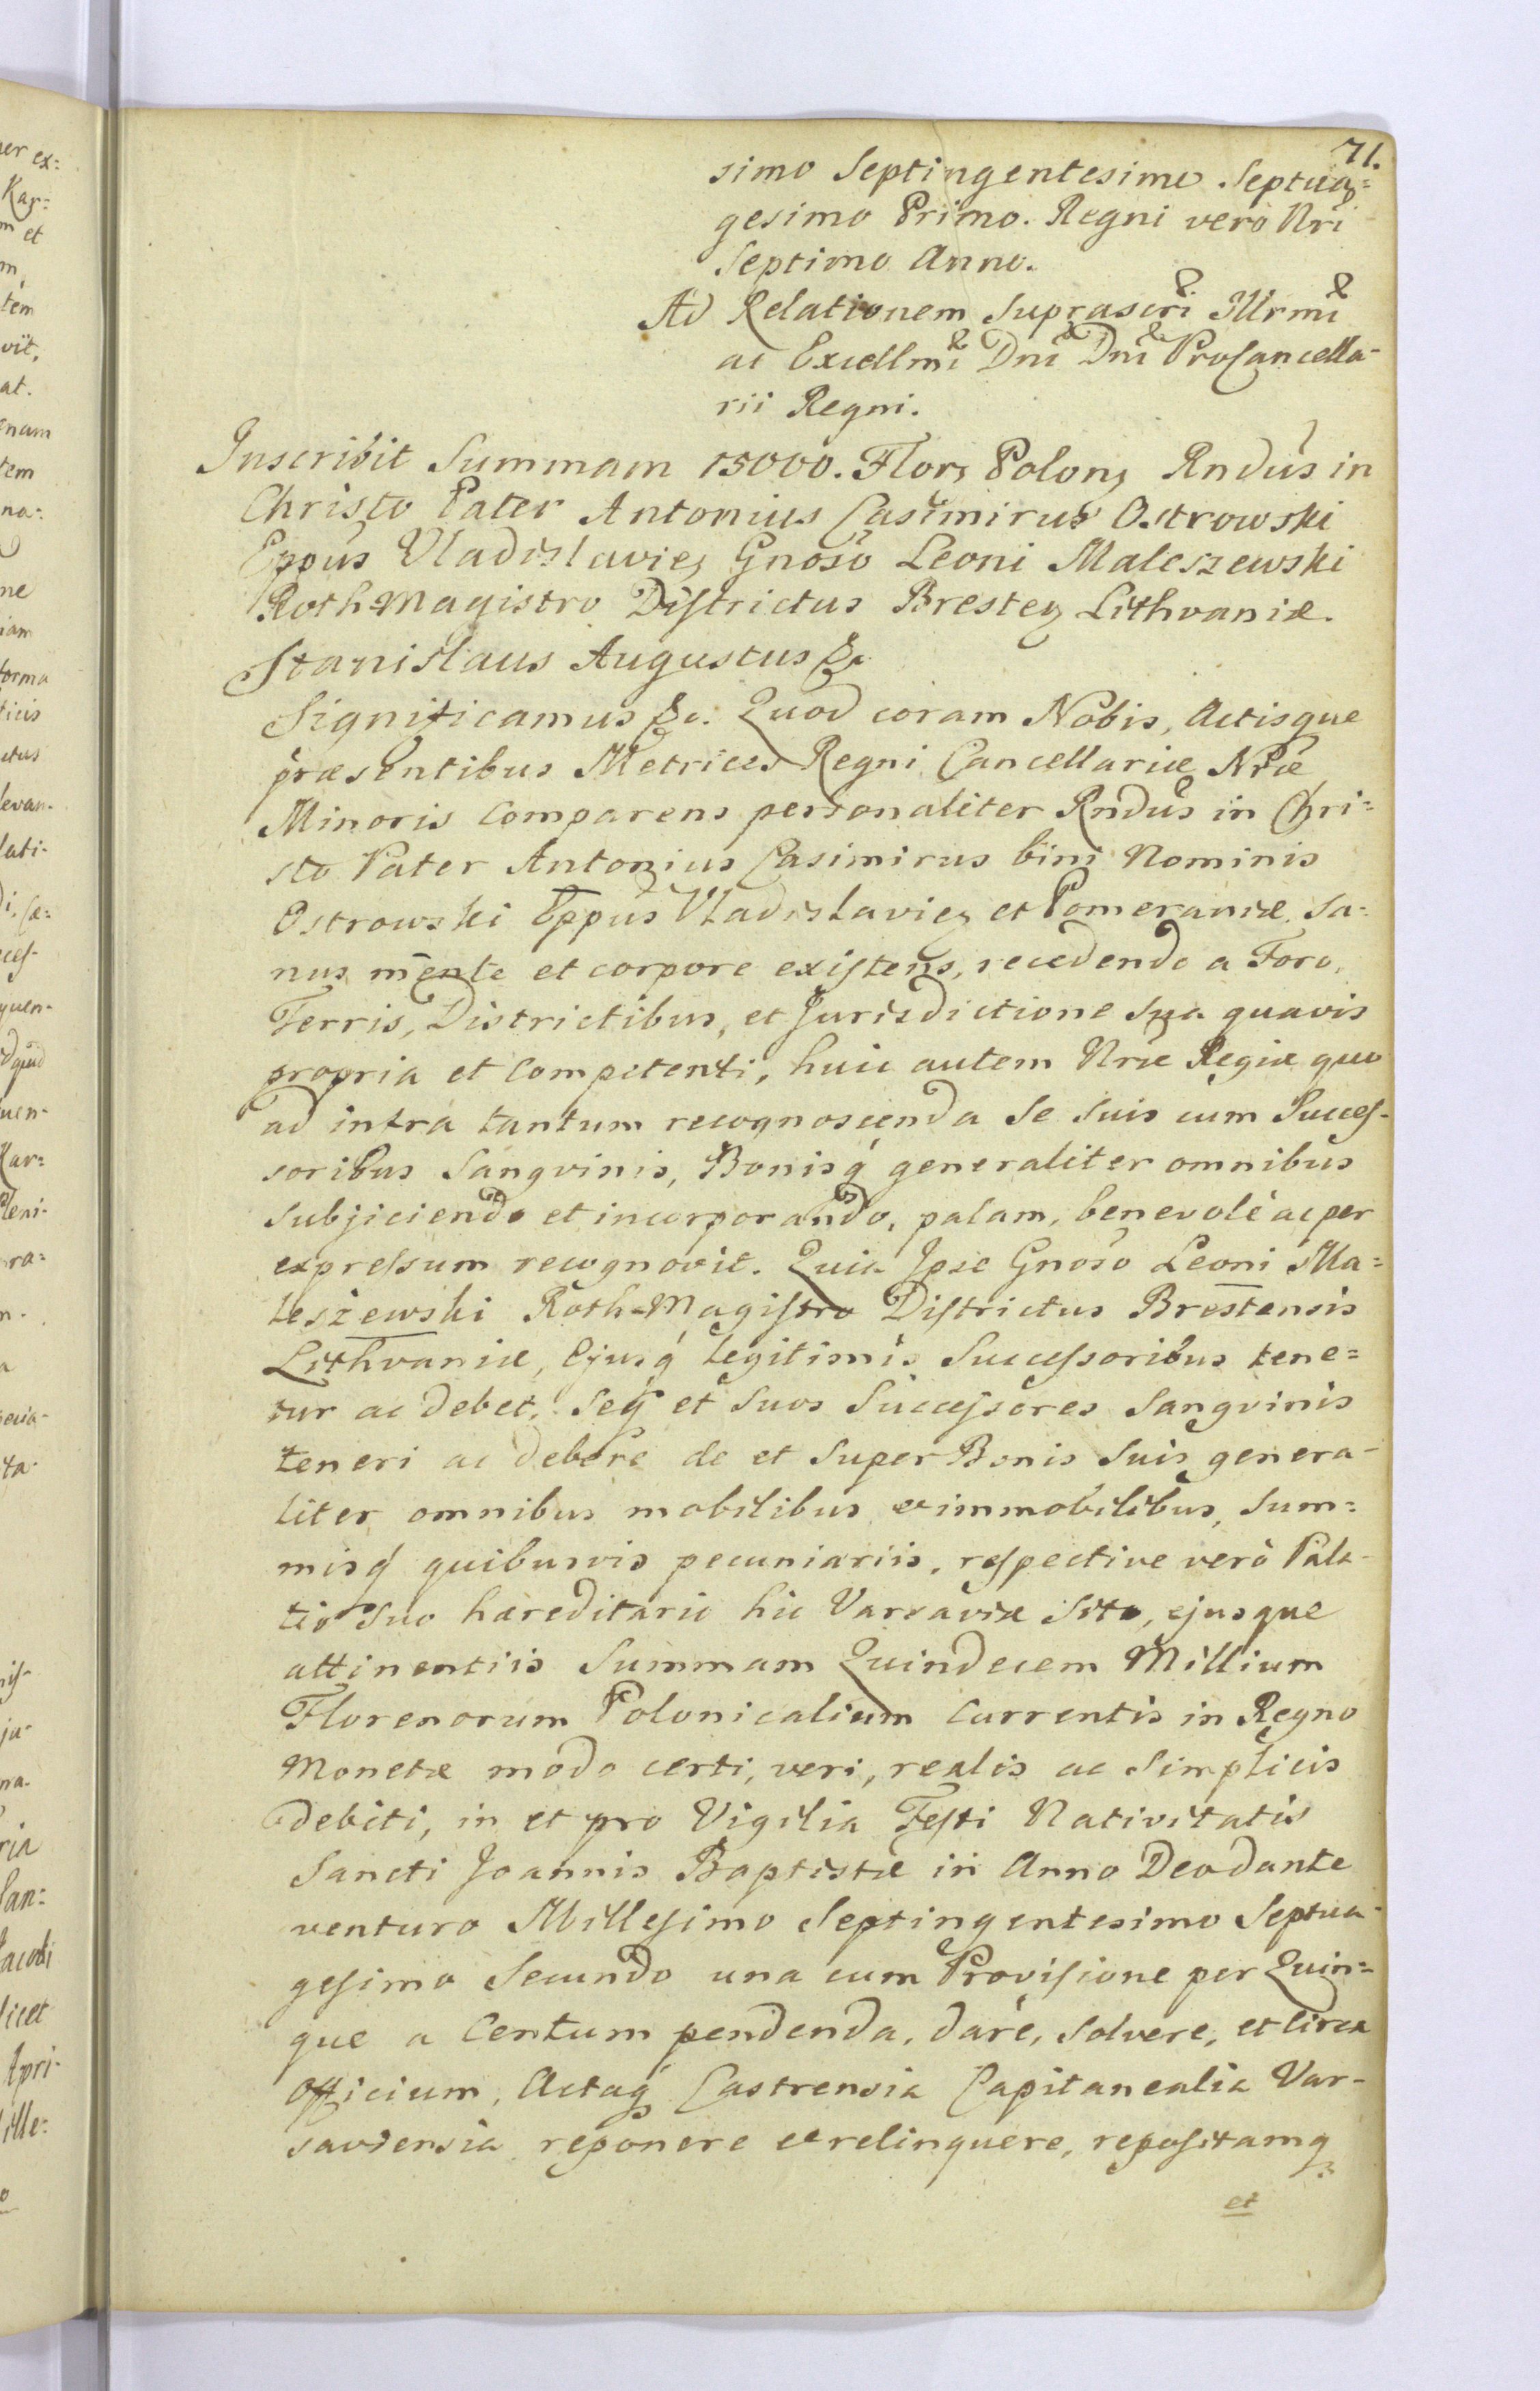 71.
simo Septingentesimo Septua=
gesimo Primo. Regni verò Nri
Septimo Anno.
Ad Relationem Suprascri Illrmi
ac Excellmi Dni Dni ProCancella-
rii Regni.
Inscribit Summam 15000. Flor, Polon, Rndus in
Christo Pater Antonius Casimirus Ostrowski
Eppus Vladislavien, Gnoso Leoni Maleszewski
Roth-Magistro Districtus Bresten, Lithvaniæ.
Stanislaus Augustus &c.
Significamus &c. Quod coram Nobis, Actisque
præsentibus Metrices Regni Cancellariæ Nræ
Minoris Comparens personaliter Rndus in Chri=
sto Pater Antonius Casimirus bini Nominis
Ostrowski Eppus Vladislavien, et Pomeraniæ, Sa=
nus mente et corpore existens, recedendo a Foro,
Terris, Districtibus, et Jurisdictione Sua quavis
propria et Competenti, huic autem Nræ Regiæ quo
ad infra tantum recognoscenda Se Suis cum Succes-
soribus Sangvinis, Bonisq́ generaliter omnibus
Subjiciendo et incorporando, palam, benevolè ac per
expressum recognovit. Quia Ipse Gnoso Leoni Ma=
leszewski Roth-Magistro Districtus Brestensis
Lithvaniæ, Ejusq́ Legitimis Successoribus tene=
tur ac debet, Seq́ et Suos Successores Sangvinis
teneri ac debere de et Super Bonis Suis genera-
liter omnibus mobilibus et immobilibus, Sum=
misq́ quibusvis pecuniariis, respective verò Pala-
tio Suo hæreditario hic Varsaviæ Sito, ejusque
attinentiis Summam Quindecem Millium
Florenorum Polonicalium Currentis in Regno
Monetæ modo certi, veri, realis ac Simplicis
debiti, in et pro Vigilia Festi Nativitatis
Sancti Joannis Baptistæ in Anno Deo dante
venturo Millesimo Septingentesimo Septua-
gesimo Secundo una cum Provisione per Quin=
que a Centum pendenda, dare, Solvere, et Circa
Officium, Actaq́ Castrensia Capitanealia Var-
saviensia reponere et relinquere, repositamq
et